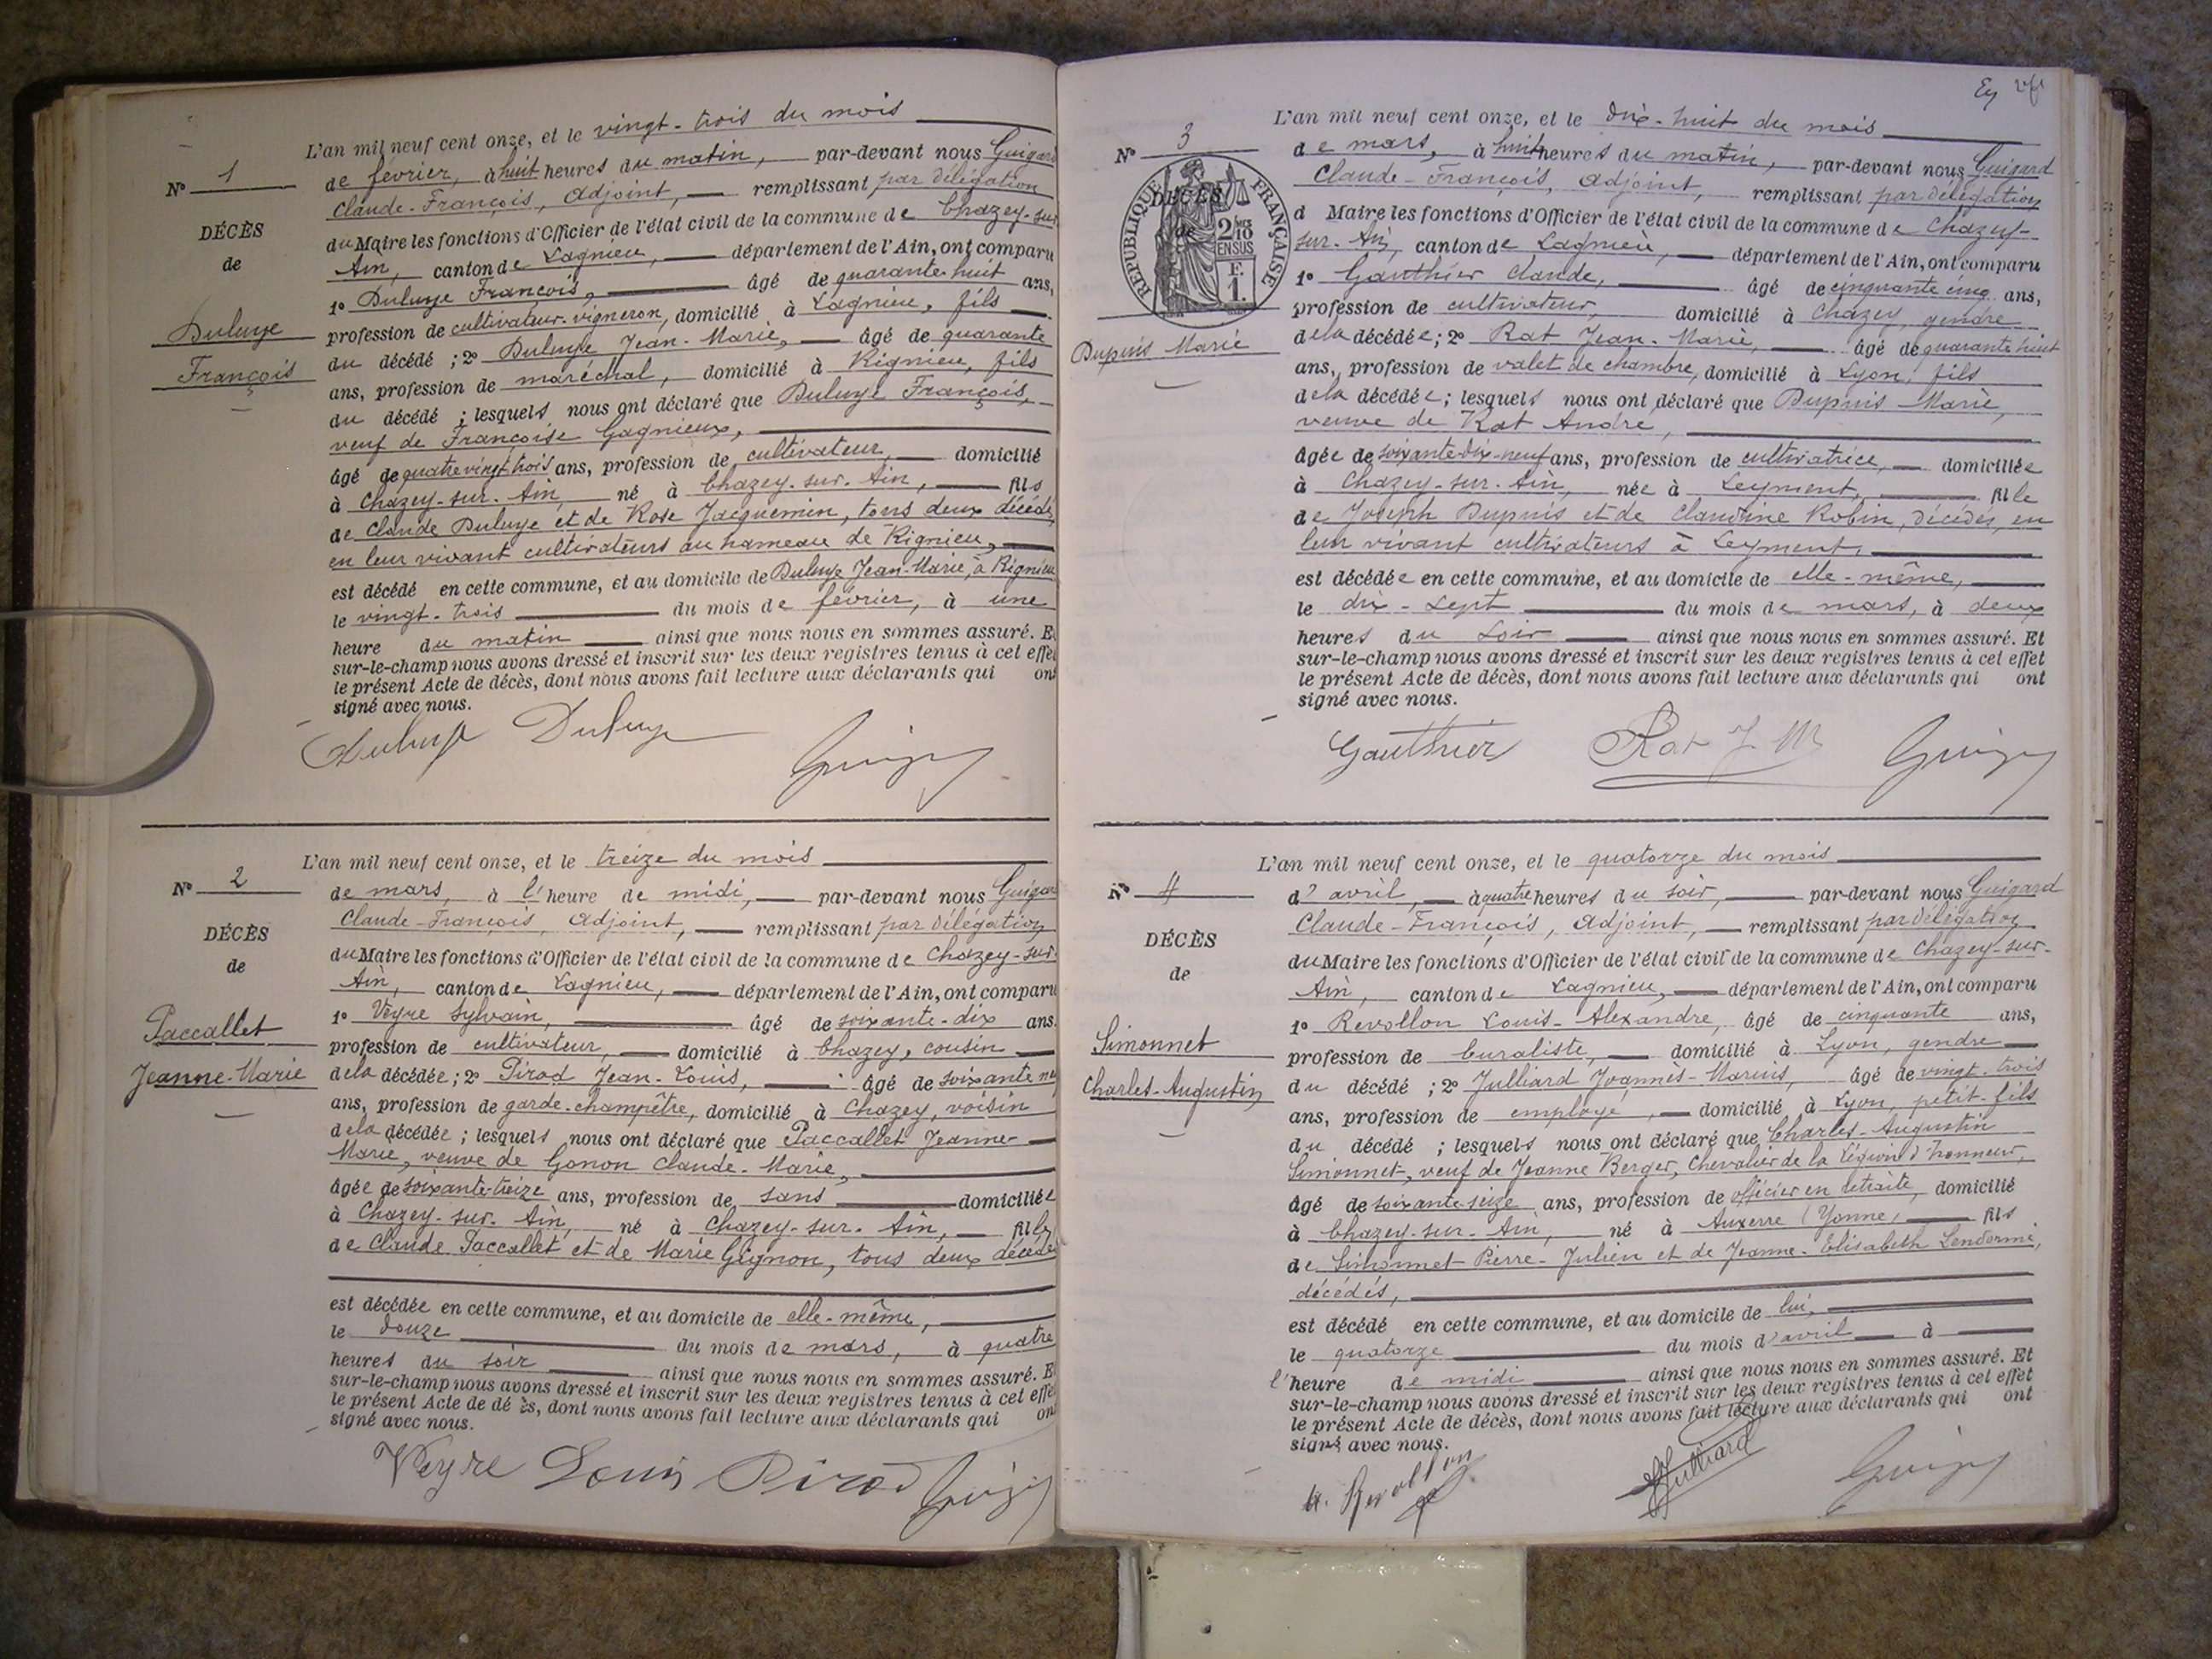 L'an mil neuf cent onze, et le vingt-trois du mois
N° 1
de février, à huit heures du matin, par-devant nous Guigard
Claude-François, Adjoint, remplissant par délégation
DÉCÈS
du Maire les fonctions d'Officier de l'état civil de la commune de Chazey-sur
de
Ain, canton de Lagnieu, département de l'Ain, ont comparu
1° Duluye François, âgé de quarante-huit ans,
Duluye
profession de cultivateur-vigneron, domicilié à Lagnieu, fils
François
du décédé ; 2° Duluye Jean-Marie, âgé de quarante
ans, profession de maréchal, domicilié à Rignieu, fils
du décédé ; lesquels nous ont déclaré que Duluye François,
veuf de Françoise Gagnieux,
âgé de quatre vingt trois ans, profession de cultivateur, domicilié
à Chazey-sur-Ain, né à Chazey-sur-Ain, fils
de Claude Duluye et de Rose Jacquemin, tous deux décédés,
en leur vivant cultivateurs au hameau de Rignieu,
est décédé en cette commune, et au domicile de Duluye Jean-Marie, à Rignieu
le vingt-trois du mois de février, à une
heure du matin ainsi que nous nous en sommes assuré. Et
sur-le-champ nous avons dressé et inscrit sur les deux registres tenus à cet effet
le présent Acte de décès, dont nous avons fait lecture aux déclarants qui ont
signé avec nous.
Duluye Duluye
L'an mil neuf cent onze, et le treize du mois
N° 2
de mars, à l'heure de midi, par-devant nous Guigard
Claude-François, Adjoint, remplissant par délégation
DÉCÈS
du Maire les fonctions d'Officier de l'état civil de la commune de Chazey-sur-
de
Ain, canton de Lagnieu, département de l'Ain, ont comparu
1° Veyre Sylvain, âgé de soixante-dix ans.
Paccallet
profession de cultivateur, domicilié à Chazey, cousin
Jeanne-Marie
de la décédée ; 2° Pirod Jean-Louis, âgé de soixante neuf
ans, profession de garde-champêtre, domicilié à Chazey, voisin
de la décédée ; lesquels nous ont déclaré que Paccallet Jeanne-
Marie, veuve de Gonon Claude-Marie,
âgée de soixante-treize ans, profession de sans domiciliée
à Chazey-sur-Ain, né à Chazey-sur-Ain, fille
de Claude Paccallet et de Marie Gignon, tous deux décédés
est décédée en cette commune, et au domicile de elle-même,
le douze du mois de mars, à quatre
heures du soir ainsi que nous nous en sommes assuré. Et
sur-le-champ nous avons dressé et inscrit sur les deux registres tenus à cet effet
le présent Acte de décès, dont nous avons fait lecture aux déclarants qui ont
signé avec nous.
Veyre Louis Pirod
L'an mil neuf cent onze, et le dix-huit du mois
N° 3
de mars, à huit heures du matin, par-devant nous Guigard
Claude-François, Adjoint, remplissant par délégation
DÉCÈS
de
RÉPUBLIQUE FRANÇAISE
2/10 EN SUS
F. 1.
d Maire les fonctions d'Officier de l'état civil de la commune de Chazey-
sur-Ain, canton de Lagnieu, département de l'Ain, ont comparu
1° Gauthier Claude, âgé de cinquante cinq ans,
profession de cultivateur, domicilié à Chazey, gendre
Dupuis Marie
de la décédée ; 2° Rat Jean-Marie, âgé de quarante huit
ans, profession de valet de chambre, domicilié à Lyon, fils
de la décédée ; lesquels nous ont déclaré que Dupuis Marie,
veuve de Rat André,
âgée de soixante-dix-neuf ans, profession de cultivatrice, domiciliée
à Chazey-sur-Ain, née à Leyment, fille
de Joseph Dupuis et de Claudine Robin, décédés, en
leur vivant cultivateurs à Leyment,
est décédée en cette commune, et au domicile de elle-même,
le dix-sept du mois de mars, à deux
heures du soir ainsi que nous nous en sommes assuré. Et
sur-le-champ nous avons dressé et inscrit sur les deux registres tenus à cet effet
le présent Acte de décès, dont nous avons fait lecture aux déclarants qui ont
signé avec nous.
Gauthier Rat J M
L'an mil neuf cent onze, et le quatorze du mois
N° 4
d'avril, à quatre heures du soir, par-devant nous Guigard
Claude-François, Adjoint, remplissant par délégation
DÉCÈS
du Maire les fonctions d'Officier de l'état civil de la commune de Chazey-sur-
de
Ain, canton de Lagnieu, département de l'Ain, ont comparu
1° Revollon Louis-Alexandre, âgé de cinquante ans,
Simonnet
profession de buraliste, domicilié à Lyon, gendre
Charles-Augustin
du décédé ; 2° Julliard Joannès-Marius, âgé de vingt-trois
ans, profession de employé, domicilié à Lyon, petit-fils
du décédé ; lesquels nous ont déclaré que Charles-Augustin
Simonnet, veuf de Jeanne Berger, Chevalier de la Légion d'honneur,
âgé de soixante-seize ans, profession de officier en retraite, domicilié
à Chazey-sur-Ain, né à Auxerre (Yonne, fils
de Simonnet Pierre-Julien et de Jeanne-Elisabeth Lendormi,
décédés,
est décédé en cette commune, et au domicile de lui,
le quatorze du mois d'avril à
l'heure de midi ainsi que nous nous en sommes assuré. Et
sur-le-champ nous avons dressé et inscrit sur les deux registres tenus à cet effet
le présent Acte de décès, dont nous avons fait lecture aux déclarants qui ont
signé avec nous.
Revollon Julliard